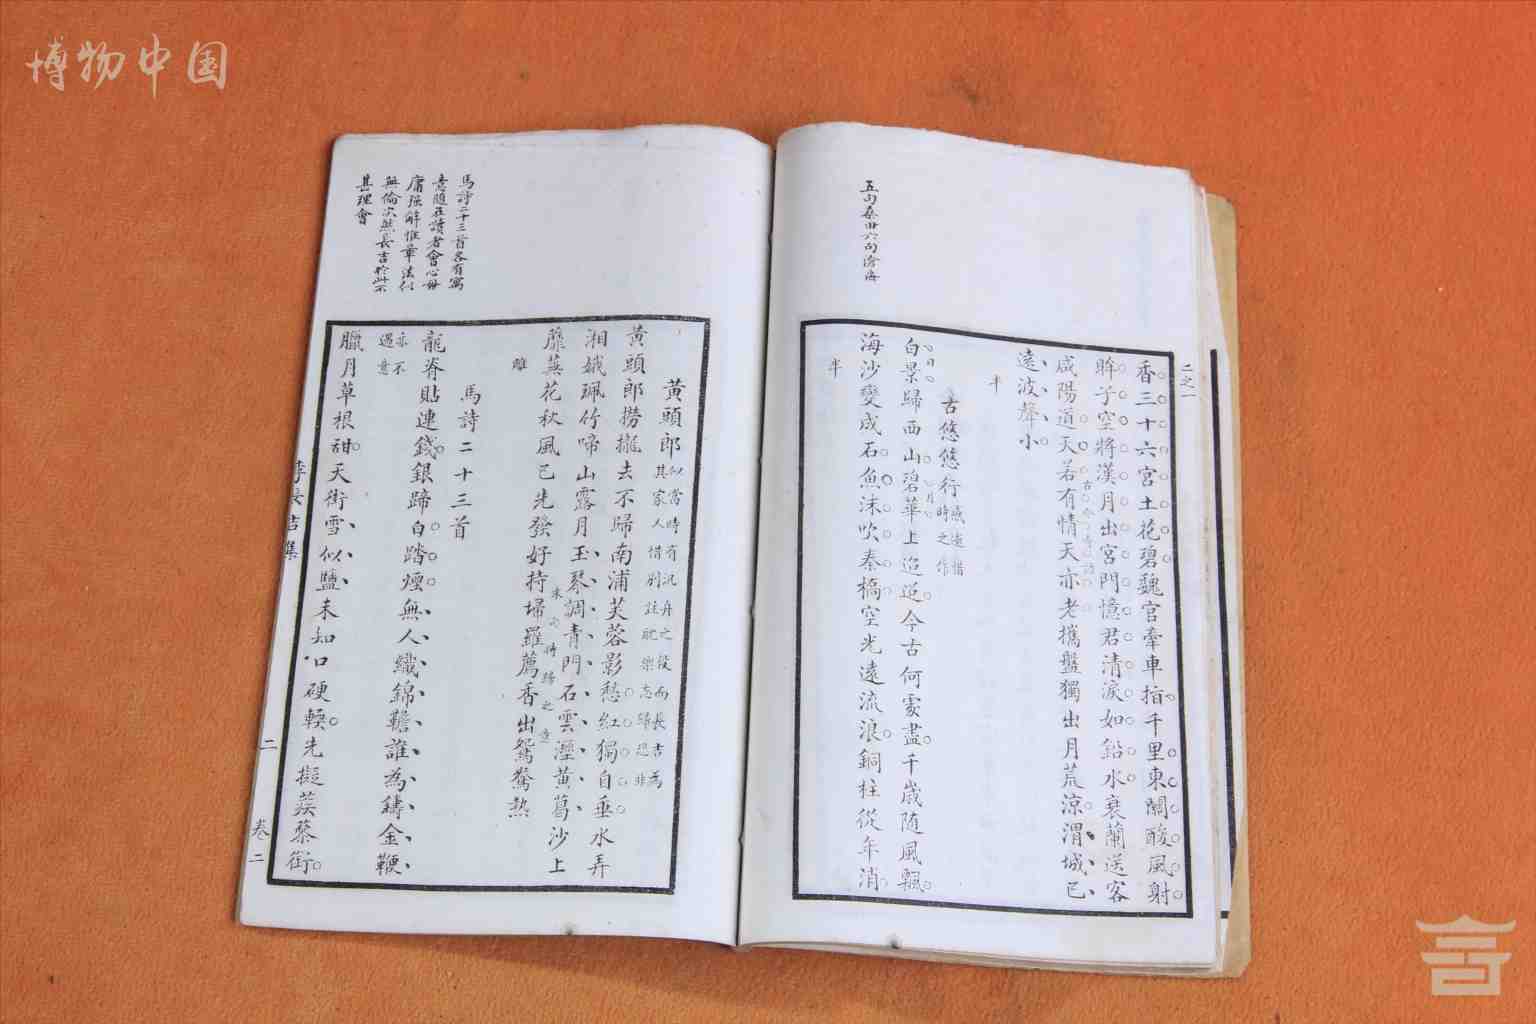 博物中国
二之一
香三十六宮土花碧魏官牽車指千里東關酸風射
眸子空將漢月出宮門憶君清淚如鉛水衰蘭送客
咸陽道天若有情天亦老攜盤獨出月荒涼渭城已
遠波聲小
古悠悠行
白景歸西山碧華上迢迢今古何處盡千歲隨風飄
日
月
海沙變成石魚沫吹秦橋空光遠流浪銅柱從年消
五句桑田六句滄海
黃頭郎
似當時有汎舟之役而長吉為
其家人惜別註耽樂忘歸恐非
黃頭郎撈攏去不歸南浦芙蓉影愁紅獨自垂水弄
湘娥珮竹啼山露月玉琴調青門石雲溼黃葛沙上
蘼蕪花秋風已先發好持埽羅薦香出鴛鴦熱
馬詩二十三首
馬詩二十三首各有寓
意隨在讀者會心毋
庸强解惟章法似
無倫次然長吉於此不
甚理會
龍脊貼連錢銀蹄白踏煙無人織錦韂誰為鑄金鞭
亦不
遇意
臘月草根甜天街雪似鹽未知口硬輭先擬蒺藜銜
李長吉集
卷二
二